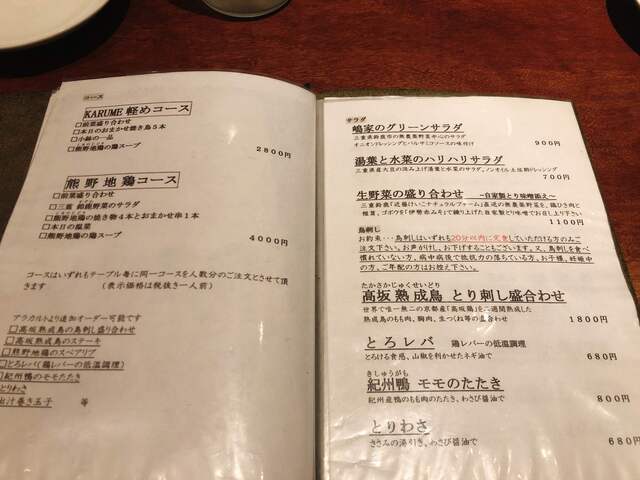 コース
KARUME 軽めコース
□前菜盛り合わせ
□本日のおまかせ焼き鳥5本
□小鉢の一品
□熊野地鶏の鶏スープ
2800円
熊野地鶏コース
□前菜盛り合わせ
□三重 鈴鹿野菜のサラダ
□熊野地鶏の焼き物4本とおまかせ串1本
□本日の温菜
□熊野地鶏の鶏スープ
4000円
コースはいずれもテーブル毎に同一コースを人数分のご注文とさせて頂
きます (表示価格は税抜き一人前)
アラカルトより追加オーダー可能です
□高坂熟成鳥の鳥刺し盛合わせ
□高坂熟成鳥のステーキ
□熊野地鶏のスペアリブ
□とろレバ(鶏レバーの低温調理)
□紀州鴨のモモのたたき
とりわさ
出汁巻き玉子 等
サラダ
嶋家のグリーンサラダ
三重県鈴鹿市の無農薬野菜中心のサラダ
オニオンドレッシングとバルサミコソースの味付け
900円
湯葉と水菜のハリハリサラダ
三重県産大豆の汲み上げ湯葉と水菜のサラダ、ノンオイル土佐酢ドレッシング
700円
生野菜の盛り合わせ ~自家製とり味噌添え~
三重鈴鹿「近藤けいこナチュラルファーム」直送の無農薬野菜を、鶏ひき肉と
椎茸、ゴボウを「伊勢赤みそ」で練り上げた自家製とり味噌でお召し上り下さい
1100円
鳥刺し
お約束・・・鳥刺しはいずれも20分以内に完食していただける方のみご
注文下さい。お声がけし、お下げすることもございます。又、鳥刺しを食べ
慣れていない方、病中病後で抵抗力の落ちている方、お子様、妊娠中
の方、ご年配の方はお控え下さい。
たかさかじゅくせいどり
高坂熟成鳥 とり刺し盛合わせ
世界で唯一無二の京都産「高坂鶏」を二週間熟成した
熟成鳥のもも肉、胸肉、生つくね等の盛合わせ
1800円
とろレバ 鶏レバーの低温調理
とろける食感、山椒を利かせたネギ油で
680円
きしゅうがも
紀州鴨 モモのたたき
紀州産鴨のもも肉のたたき、わさび醤油で
800円
とりわさ
ささみの湯引き、わさび醤油で
680円